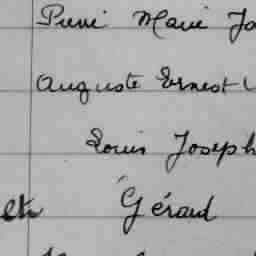 Pierre Marie Jo
Auguste Ernest
Louis Joseph
Gérard